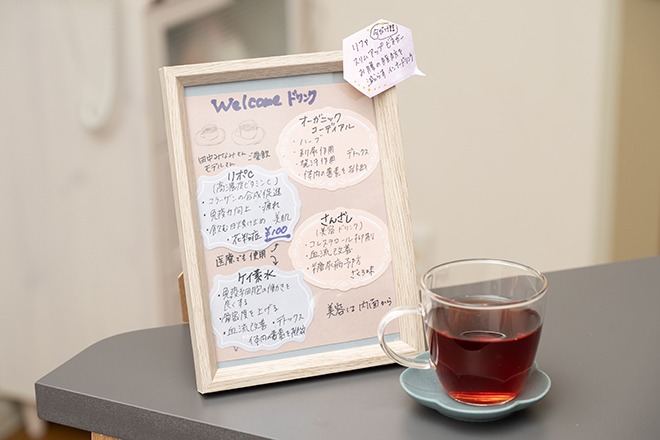 リファ 今だけ!!
スリムアップビネガー
お腹の脂肪を
減らすインナードリンク
Welcome ドリンク
田中みなみさん ご愛飲
モデルさん
オーガニック
コーディアル
・ハーブ
・利尿作用
・発汗作用 デトックス
・体内の毒素を排出
リポC
(高濃度ビタミンC)
・コラーゲンの合成促進
・免疫力向上 ・疲れ
・飲む日焼け止め 美肌
・花粉症 ¥100
医療でも使用
さんざし
(美容ドリンク)
・コレステロール抑制
・血流改善
・糖尿病予防
ざくろ味
ケイ素水
・免疫細胞の働きを
良くする
・骨密度を上げる
・血流改善 ・デトックス
体内の毒素を排出
美容は内面から